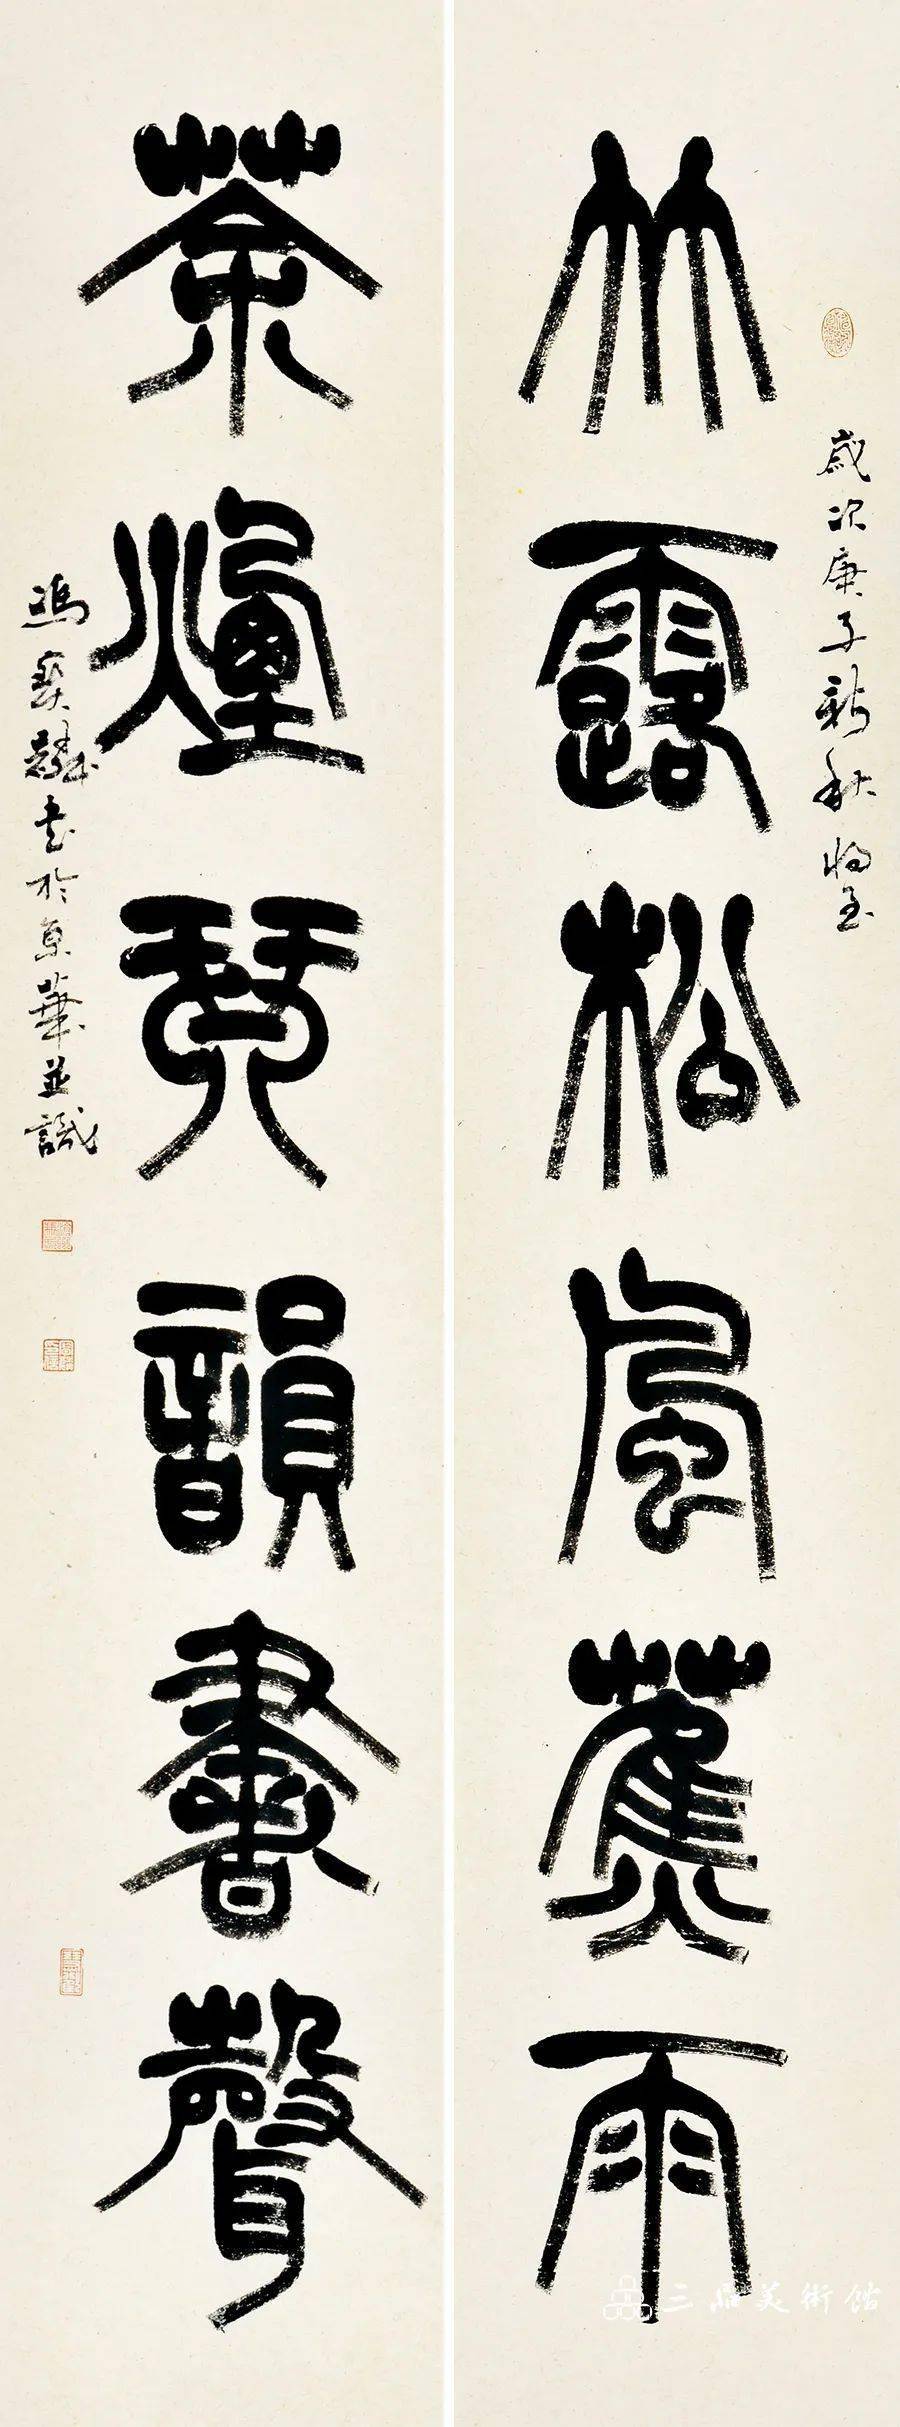 竹露松風蕉雨
歲次庚子新秋將至
茶煙琴韻書聲
馮寶麟書於京華並識
三品美術館